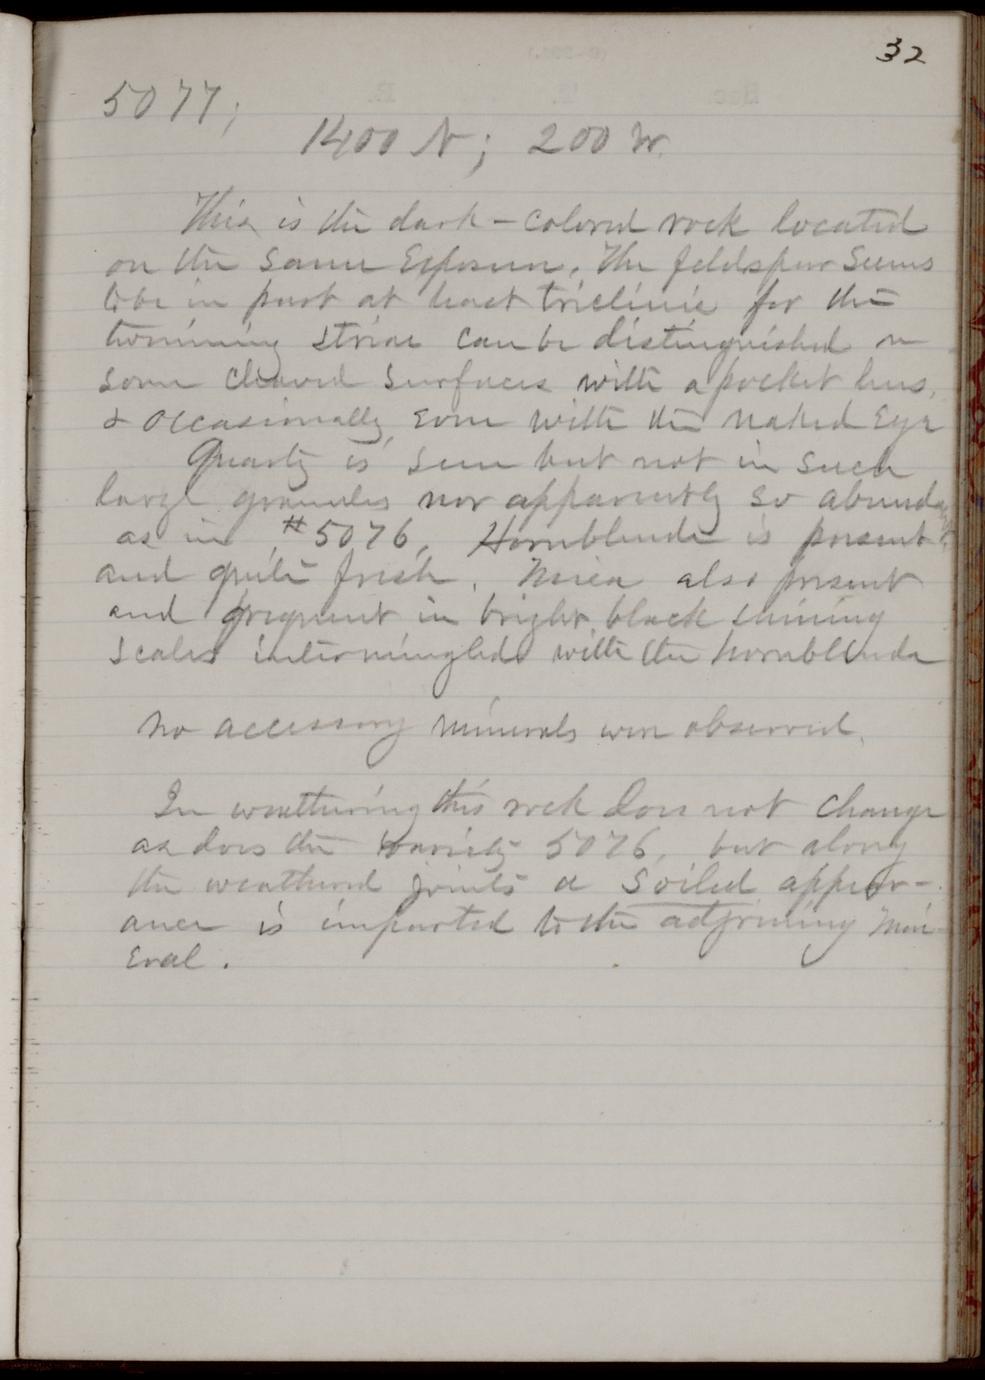 32
5077;
1400 N; 200 W.
This is the dark-colored rock located
on the same Exposure. The feldspar seems
to be in part at least triclinic for the
twinning striae can be distinguished on
some cleaved surfaces with a pocket lens,
& occasionally even with the naked Eye
Quartz is seen but not in such
large granules nor apparently so abundant
as in #5076. Hornblende is present
and quite fresh. Mica also present
and frequent in bright black shining
scales intermingled with the hornblende
No accessory minerals were observed.
In weathering this rock does not change
as does the variety 5076, but along
the weathered joints a soiled appear-
ance is imparted to the adjoining min-
eral.